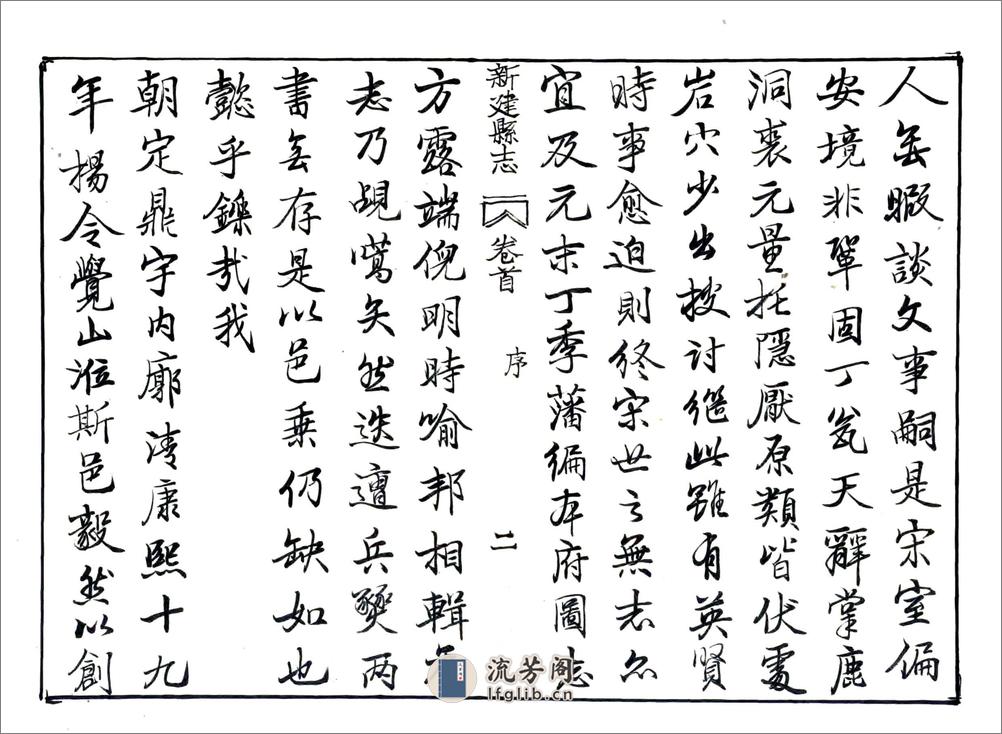 人無暇談文事嗣是宋室偏
安境非鞏固丁瓮天辭掌鹿
洞裘元量托隱厭原類皆伏處
岩穴少出搜討繼此雖有英賢
時事愈迫則終宋世之無志亦
宜及元末丁季藩編本府圖志
新建縣志 卷首 序 二
方露端倪明時喻邦相輯
志乃覘蒍矣然迭遭兵燹两
書無存是以邑乗仍缺如也
懿乎鑠哉我
朝定鼎宇内廓清康熙十九
年楊令覺山涖斯邑毅然以創
流芳阁
lfglib.cn